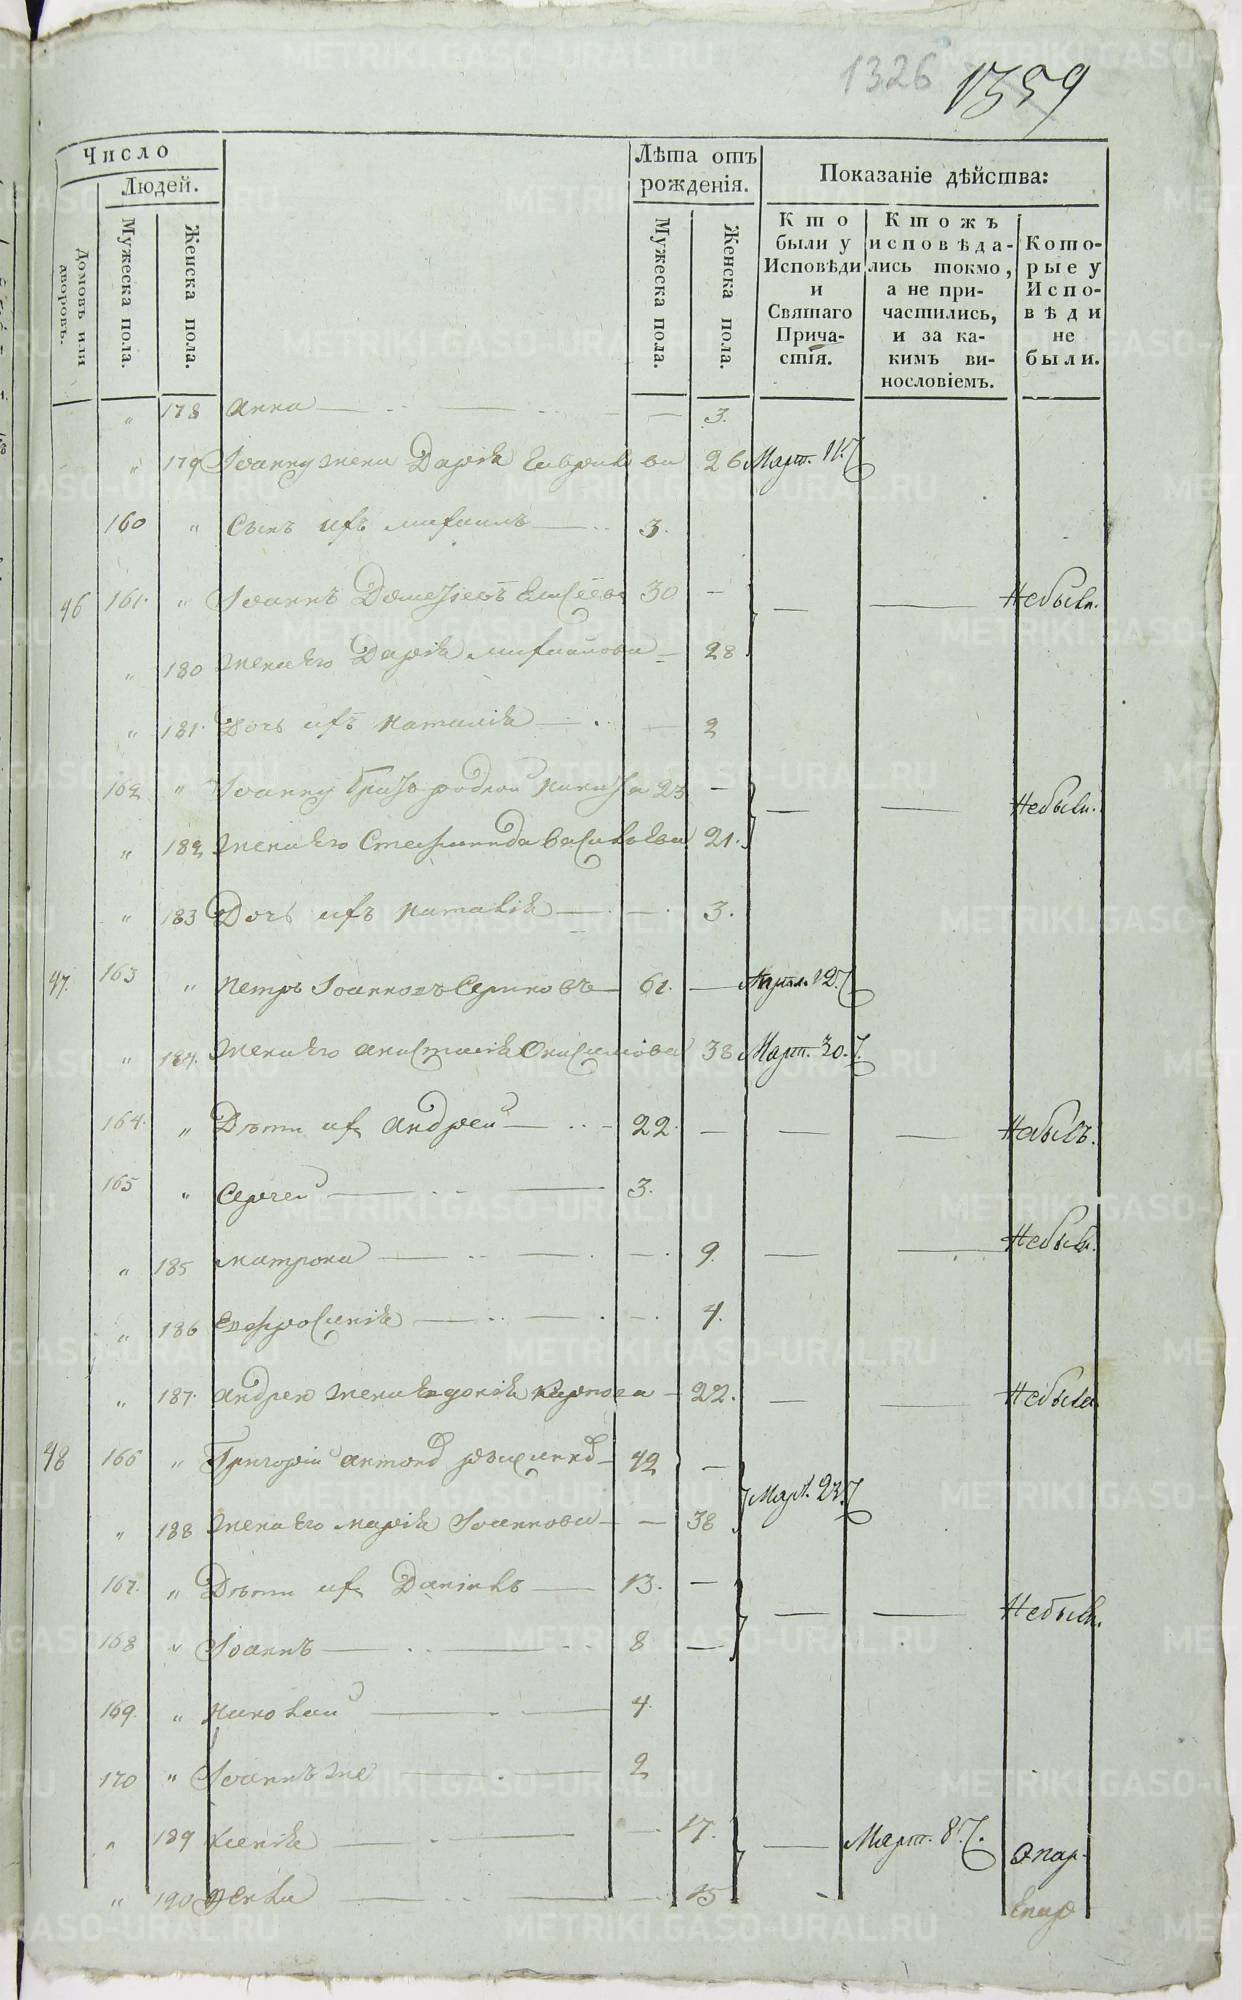 1326 1359
Число
Людей.
Домовъ или дворовъ.
Мужеска пола.
Женска пола.
Лѣта отъ рожденія.
Мужеска пола.
Женска пола.
Показаніе дѣйства:
Кто были у Исповѣди и Святаго Причастія.
Ктожъ исповѣдались токмо, а не причастились, и за какимъ винословіемъ.
Которые у Исповѣди не были.
" 178 Анна — 3.
" 179 Іоанну жена Дарія 26 Март. 11.
160 " Сынъ ихъ Михаилъ — 3.
46 161. " Іоаннъ 30 — — — Небыли.
" 180 Жена Его Дарія 28
" 181. Дочь ихъ Наталія — — 2
162 " Іоанну братъ родной Никита 23 — — — Небыли.
" 182 Жена Его Степанида Васильева 21.
" 183 Дочь ихъ Наталія — — 3.
47. 163 " Петръ Іоанновъ 61. — Апрѣл. 12.
" 184. Жена Его Анастасія 38 Март. 30.
164. " Дѣти их Андрей — 22. — — — Небылъ.
165 " Сергей — 3.
" 185 Матрона — 9. — — Небыли.
" 186 Евфросинія — 4.
" 187. Андрею жена Евдокія Карпова — 22. — — Небыла
48 166 " Григорій 42 — Март. 23.
" 188 Жена Его Марія Іоаннова — 38
167. " Дѣти их Даніилъ — 13. — — — Небыли.
168 " Іоаннъ — 8 —
169. " Николай — 4.
170 " Іоаннъ же — 2
" 189 Ксенія — 17. — Март. 8.
" 190 — 15
METRIKI.GASO-URAL.RU